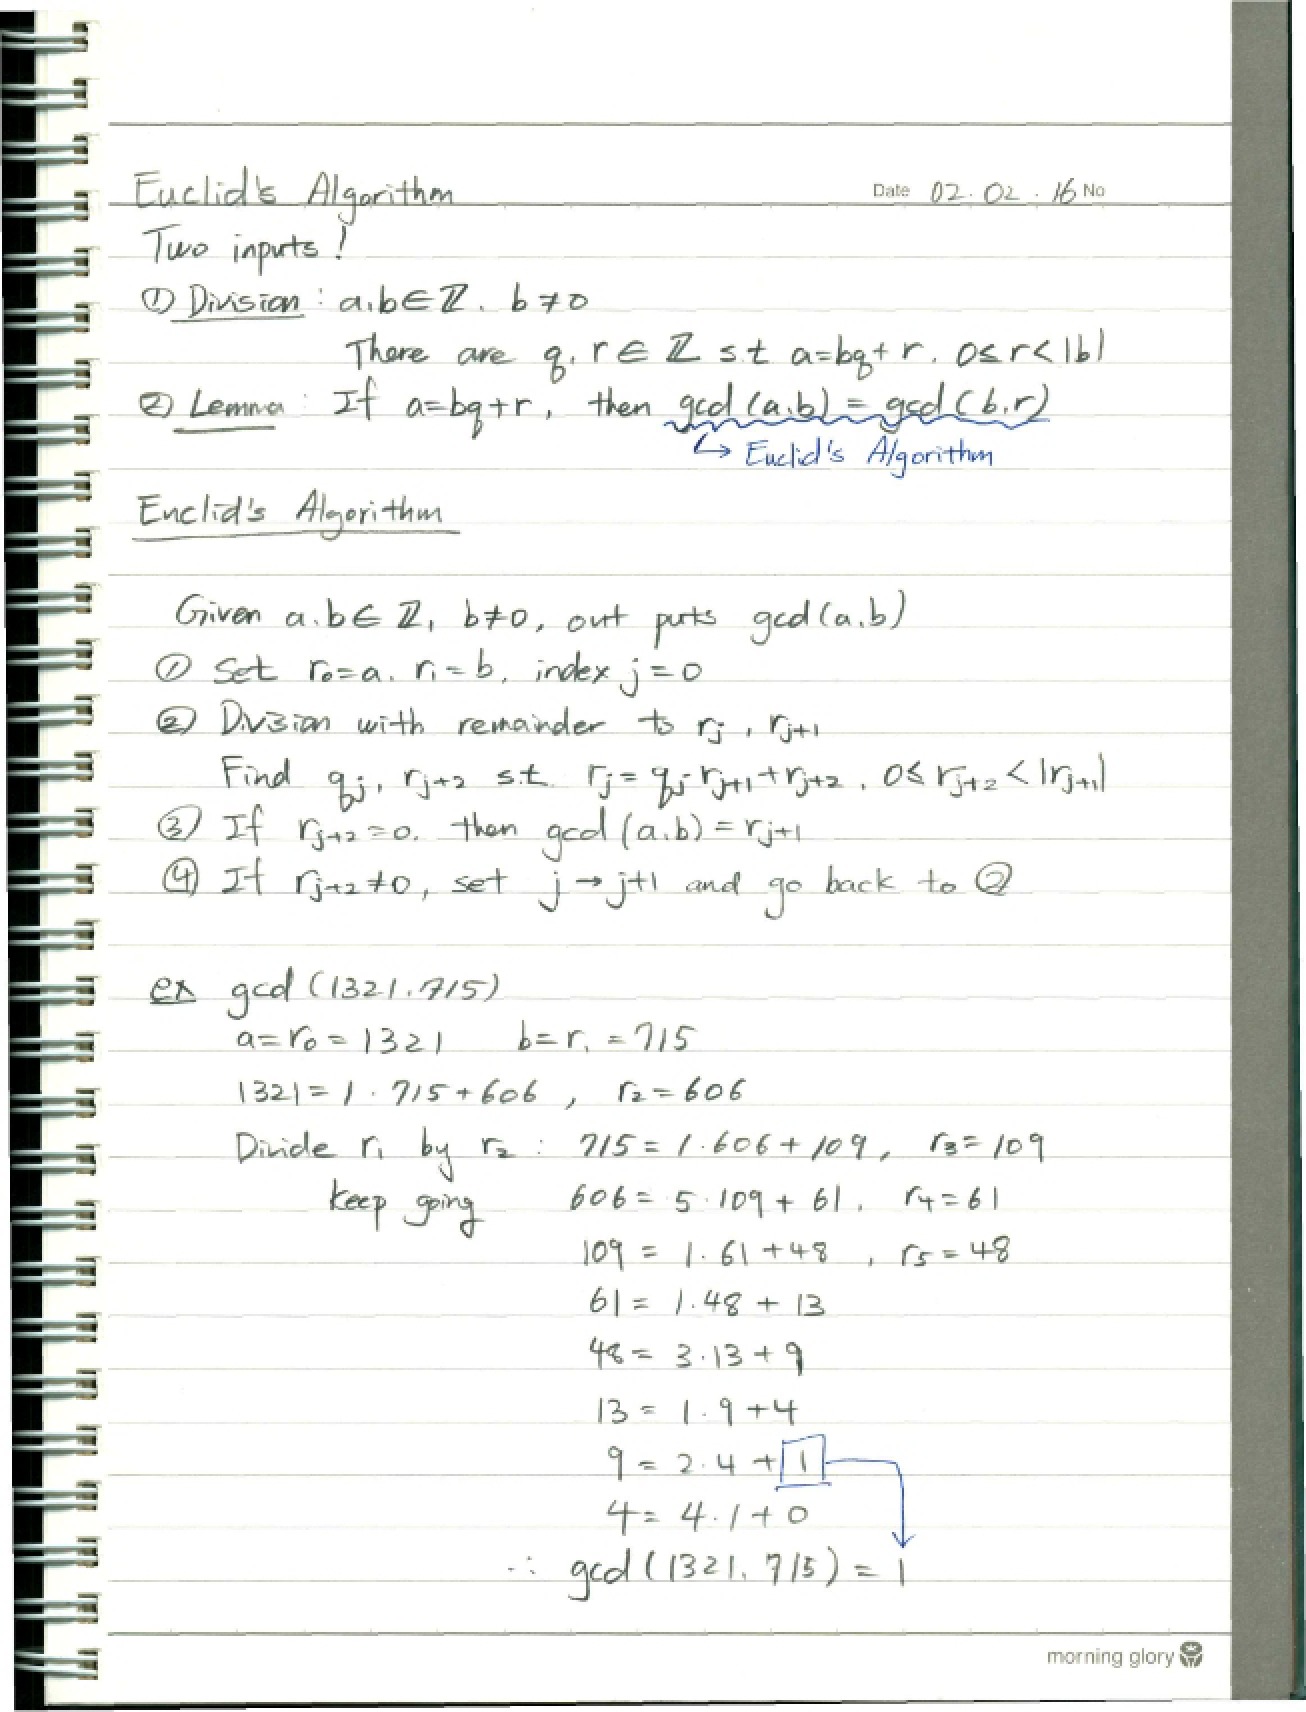 Euclid's Algorithm Date 02.02.16 No
Two inputs!
① Division : a.b∈ℤ. b≠0
There are q. r∈ℤ s.t a=bq+r. 0≤r<|b|
② Lemma : If a=bq+r, then gcd(a.b) = gcd(b.r)
↳ Euclid's Algorithm
Enclid's Algorithm
Given a.b∈ℤ, b≠0, out puts gcd(a.b)
① Set r₀=a. r₁=b. index j=0
② Division with remainder to rⱼ, rⱼ₊₁
Find qⱼ, rⱼ₊₂ s.t. rⱼ=qⱼ·rⱼ₊₁+rⱼ₊₂. 0≤rⱼ₊₂<|rⱼ₊₁|
③ If rⱼ₊₂=0. then gcd(a.b)=rⱼ₊₁
④ If rⱼ₊₂≠0, set j→j+1 and go back to ②
ex gcd(1321.715)
a=r₀=1321 b=r₁=715
1321=1·715+606, r₂=606
Divide r₁ by r₂ : 715=1·606+109, r₃=109
keep going 606=5·109+61. r₄=61
109=1·61+48, r₅=48
61=1·48+13
48=3·13+9
13=1·9+4
9=2·4+1
4=4·1+0
∴ gcd(1321.715)=1
morning glory